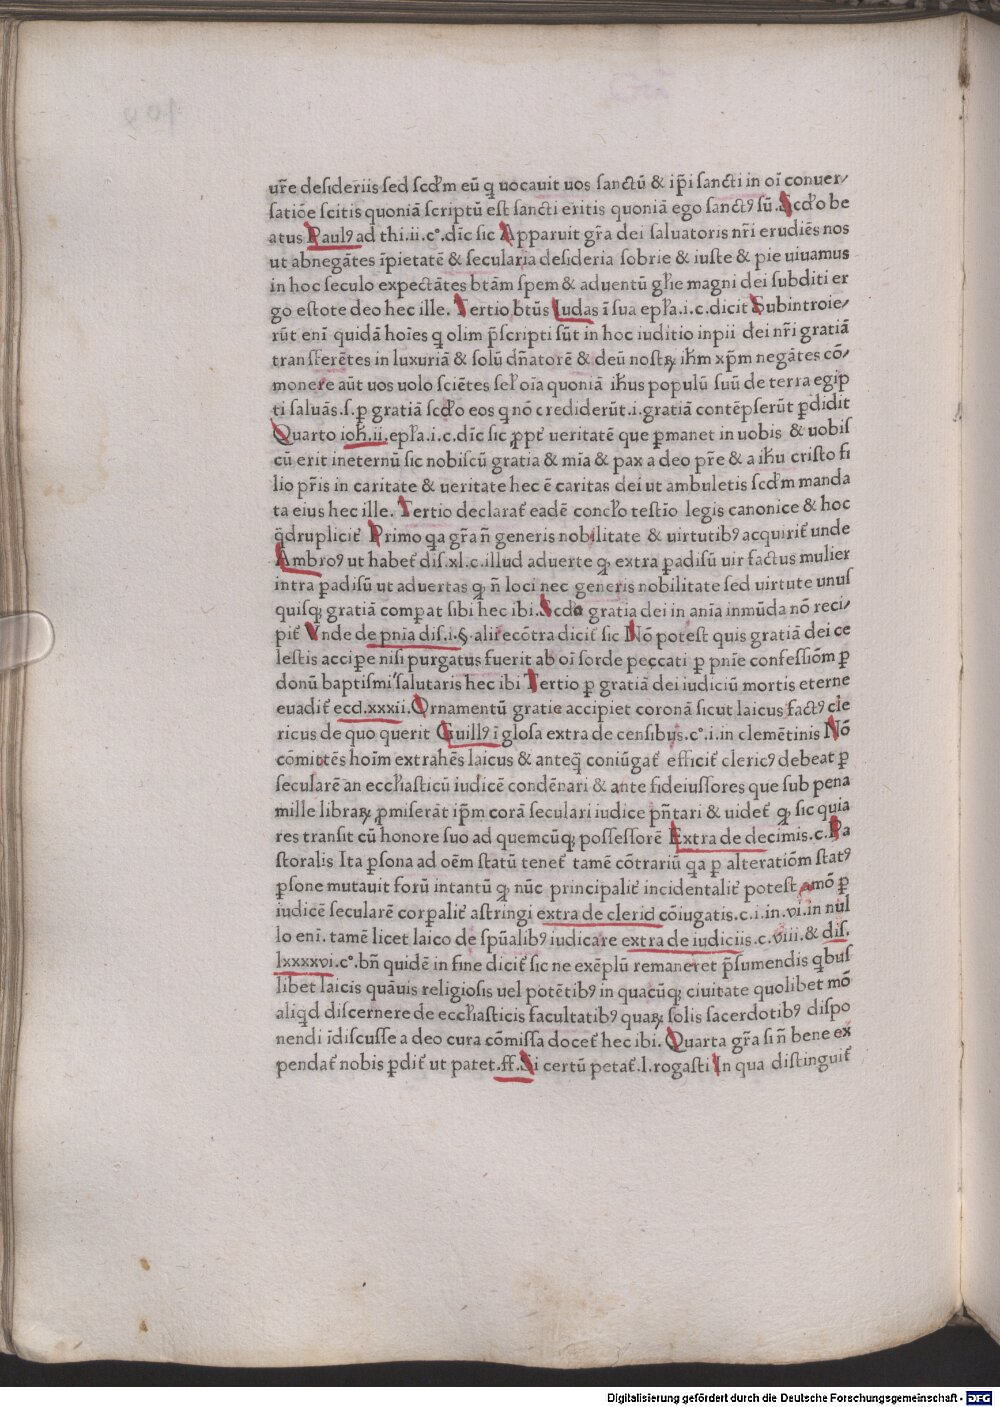 ur̄e desideriis sed scd̄m eū q̄ uocauit uos sanctū & ip̄i sancti in oī conuer/
satiōe scitis quoniā scriptū est sancti eritis quoniā ego sanctꝰ sū. Scd̄o be
atus Paulꝰ ad thi.ii.c°. dīc sic Apparuit gr̄a dei saluatoris nr̄i erudiēs nos
ut abnegātes īpietatē & secularia desideria sobrie & iuste & pie uiuamus
in hoc seculo expectātes btām spem & aduentū glīe magni dei subditi er
go estote deo hec ille. Tertio btūs Iudas ī sua epl̄a.i.c.dicit Subintroie/
rūt enī quidā hoīes q̄ olim p̄scripti sūt in hoc iuditio inpii dei nr̄i gratiā
transferētes in luxuriā & solū dn̄atorē & deū nostꝝ ih̄m xp̄m negātes cō/
monere aūt uos uolo sciētes sel̄ oīa quoniā ih̄us populū suū de terra egip
ti saluās.s.ꝑ gratiā scd̄o eos q̄ nō crediderūt.i.gratiā contēpserūt ꝑdidit
Quarto ioh̄.ii.epl̄a.i.c.dīc sic ꝓpt̄ ueritatē que ꝑmanet in uobis & uobis
cū erit ineternū sic nobiscū gratia & mīa & pax a deo pr̄e & a ih̄u cristo fi
lio pr̄is in caritate & ueritate hec ē caritas dei ut ambuletis scd̄m manda
ta eius hec ille. Tertio declarat̄ eadē concl̄o testīo legis canonice & hoc
q̄druplicit̄ Primo qa gr̄a n̄ generis nobilitate & uirtutibꝰ acquirit̄ unde
Ambroꝰ ut habet̄ dis.xl.c.illud aduerte qꝫ extra ꝑadisū uir factus mulier
intra ꝑadisū ut aduertas qꝫ n̄ loci nec generis nobilitate sed uirtute unus
quisqꝫ gratiā comꝑat sibi hec ibi. Scdo gratia dei in anīa inmūda nō reci/
pit̄ Vnde de pnīa dis.i.§.alii ecōtra dicit̄ sic Nō potest quis gratiā dei ce
lestis acciꝑe nisi purgatus fuerit ab oī sorde peccati ꝑ pnīe confessiōm ꝑ
donū baptismi salutaris hec ibi Tertio ꝑ gratiā dei iudiciū mortis eterne
euadit̄ eccl.xxxii. Ornamentū gratie accipiet coronā sicut laicus factꝰ cle
ricus de quo querit Guillꝰ ī glosa extra de censibus.c°.i.in clemētinis Nō
cōmittēs hoīm extrahēs laicus & anteq̄ coniūgat̄ efficit̄ clericꝰ debeat ꝑ
secularē an eccl̄iasticū iudicē condēnari & ante fideiussores que sub pena
mille libraꝝ ꝓmiserāt ip̄m corā seculari iudice pn̄tari & uidet̄ qꝫ sic quia
res transit cū honore suo ad quemcūqꝫ possessorē Extra de decimis.c.Pa
storalis Ita ꝑsona ad oēm statū tenet̄ tamē cōtrariū qa ꝑ alteratiōm statꝰ
ꝑsone mutauit forū intantū qꝫ nūc principalit̄ incidentalit̄ potest amō ꝑ
iudicē secularē corꝑalit̄ astringi extra de clericl cōiugatis.c.i.in.vi.in nul
lo enī. tamē licet laico de spūalibꝰ iudicare extra de iudiciis.c.viii.& dis.
lxxxxvi.c°.bn̄ quidē in fine dicit̄ sic ne exēplū remaneret p̄sumendis qbus
libet laicis quāuis religiosis uel potētibꝰ in quacūqꝫ ciuitate quolibet mō
aliqd discernere de eccl̄iasticis facultatibꝰ quaꝝ solis sacerdotibꝰ dispo
nendi īdiscusse a deo cura cōmissa docet̄ hec ibi. Quarta gr̄a si n̄ bene ex
pendat̄ nobis ꝑdit̄ ut patet.ff.Si certū petat̄.l.rogasti In qua distinguit̄
Digitalisierung gefördert durch die Deutsche Forschungsgemeinschaft - DFG